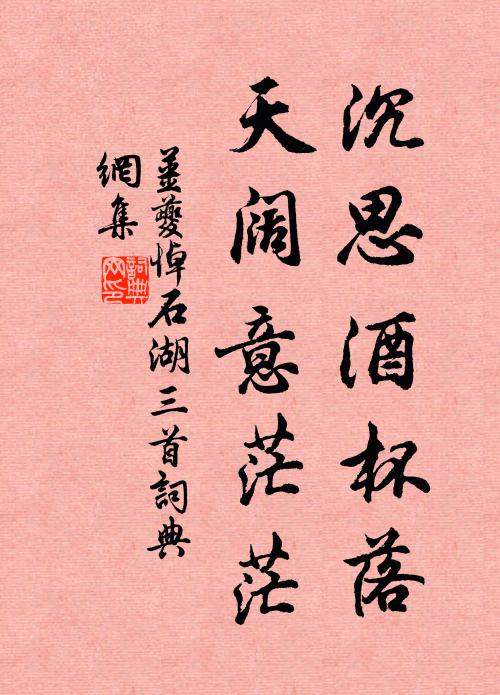 沉思酒杯落
天阔意茫茫
姜夔悼石湖三首詞典
網集
詞典網印